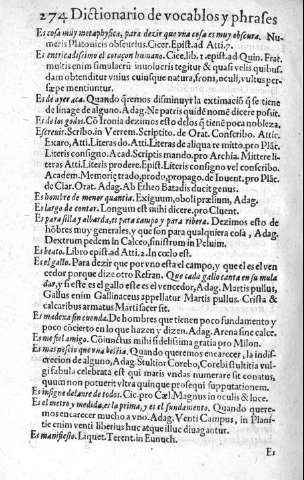 274 Dictionario de vocablos y phrases
Es cosa muy metaphysica, para dezir que vna cosa es muy obscura. Nu-
meris Platonicis obscurius. Cicer. Epist. ad Atti. 7.
Es entricadissimo el coraçon humano. Cice, lib. 1. epist. ad Quin. Frat.
multis enim simulacri inuolucris tegitur & quasi velis quibus-
dam obtenditur vnius cuiusque natura, frons, oculi, vultus per-
sæpe mentiuntur.
Es de ayer acá. Quando q̃remos disminuyr la extimació q̃ se tiene
de linage de alguno. Adag. Ne patris quidẽ nomẽ dicere possit.
Es de los godos. Cõ Ironia dezimos esto de los q̃ tiene poca nobleza.
Escreuir. Scribo. in Verrem. Scriptito. de Orat. Conscribo. Attic.
Exaro, Atti. Literas do. Atti. Literas de aliqua re mitto. pro Plãc.
Literis consigno. Acad. Scriptis mando. pro Archia. Mittere li-
teras Atti. Literis prodere. Epist. Literis consigno vel conscribo.
Academ. Memorię trado, prodo, propago. de Inuent. pro Plãc.
de Clar. Orat. Adag. Ab Estheo Batadis ducit genus.
Es hombre de menor quantia. Exiguum, oboli præsium, Adag.
Es largo de contar. Longum est mihi dicere, pro Cluent.
Es para silla y albarda, es para campo y para ribera. Dezimos esto de
hõbres muy generales, y que son para qualquiera cosa, Adag,
Dextrum pedem in Calceo, sinistrum in Peluim.
Es beato. Libro epist ad Atti. 2. In cœlo est.
Es el gallo. Para dezir que por vno está el campo, y que el es el ven
cedor porque dize otro Refran. Que cada gallo canta en su mula
dar, y si este es el gallo este es el vencedor, Adag. Martis pullus,
Gallus enim Gallinaceus appellatur Martis pullus. Crista &
calcaribus armatus Marti sacer sit.
Es madexa sin cuenda. De hombres que tienen poco fundamento y
poco cõcierto en lo que hazen y dizen. Adag. Arena sine calce.
Es mi fiel amigo. Cõiunctus mihi fidelissima gratia pro Milon.
Es mas necio que vna bestia. Quando queremos encarecer, la indis-
crecion de alguno, Adag. Stultior Corebo, Corebi stultitia vul-
gi fabula celebrata est qui maris vndas numerare sit conatus,
quum non potuerit vltra quinque prosequi supputationem.
Es insigne delante de todos. Cic. pro Cæl. Magnus in oculis & luce.
Es el metro y medida, es la prima, y es el fundamento. Quando quere-
mos encarecer mucho a vno. Adag. Venti Campus, in Plani-
tie enim venti liberius huc atque illuc diuagantur.
Es manifiesto. Liquet. Terent. in Eunuch.
Es